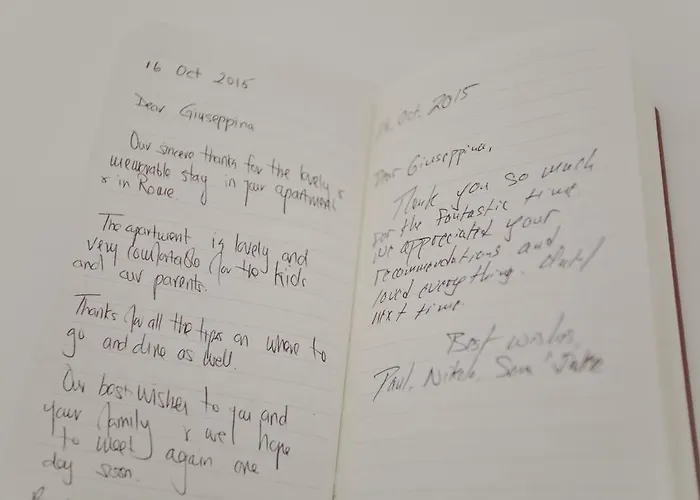 16 Oct 2015
Dear Giuseppina
Our sincere thanks for the lovely &
memorable stay in your apartment
& in Rome.
The apartment is lovely and
very comfortable for the kids
and our parents.
Thanks for all the tips on where to
go and dine as well.
Our best wishes to you and
your family & we hope
to meet again one
day soon.
Oct. 2015
Dear Giuseppina,
Thank you so much
for the fantastic time.
We appreciated your
recommendations and
loved everything. Until
next time.
Best wishes,
Paul, Nikole, Sam & Jake